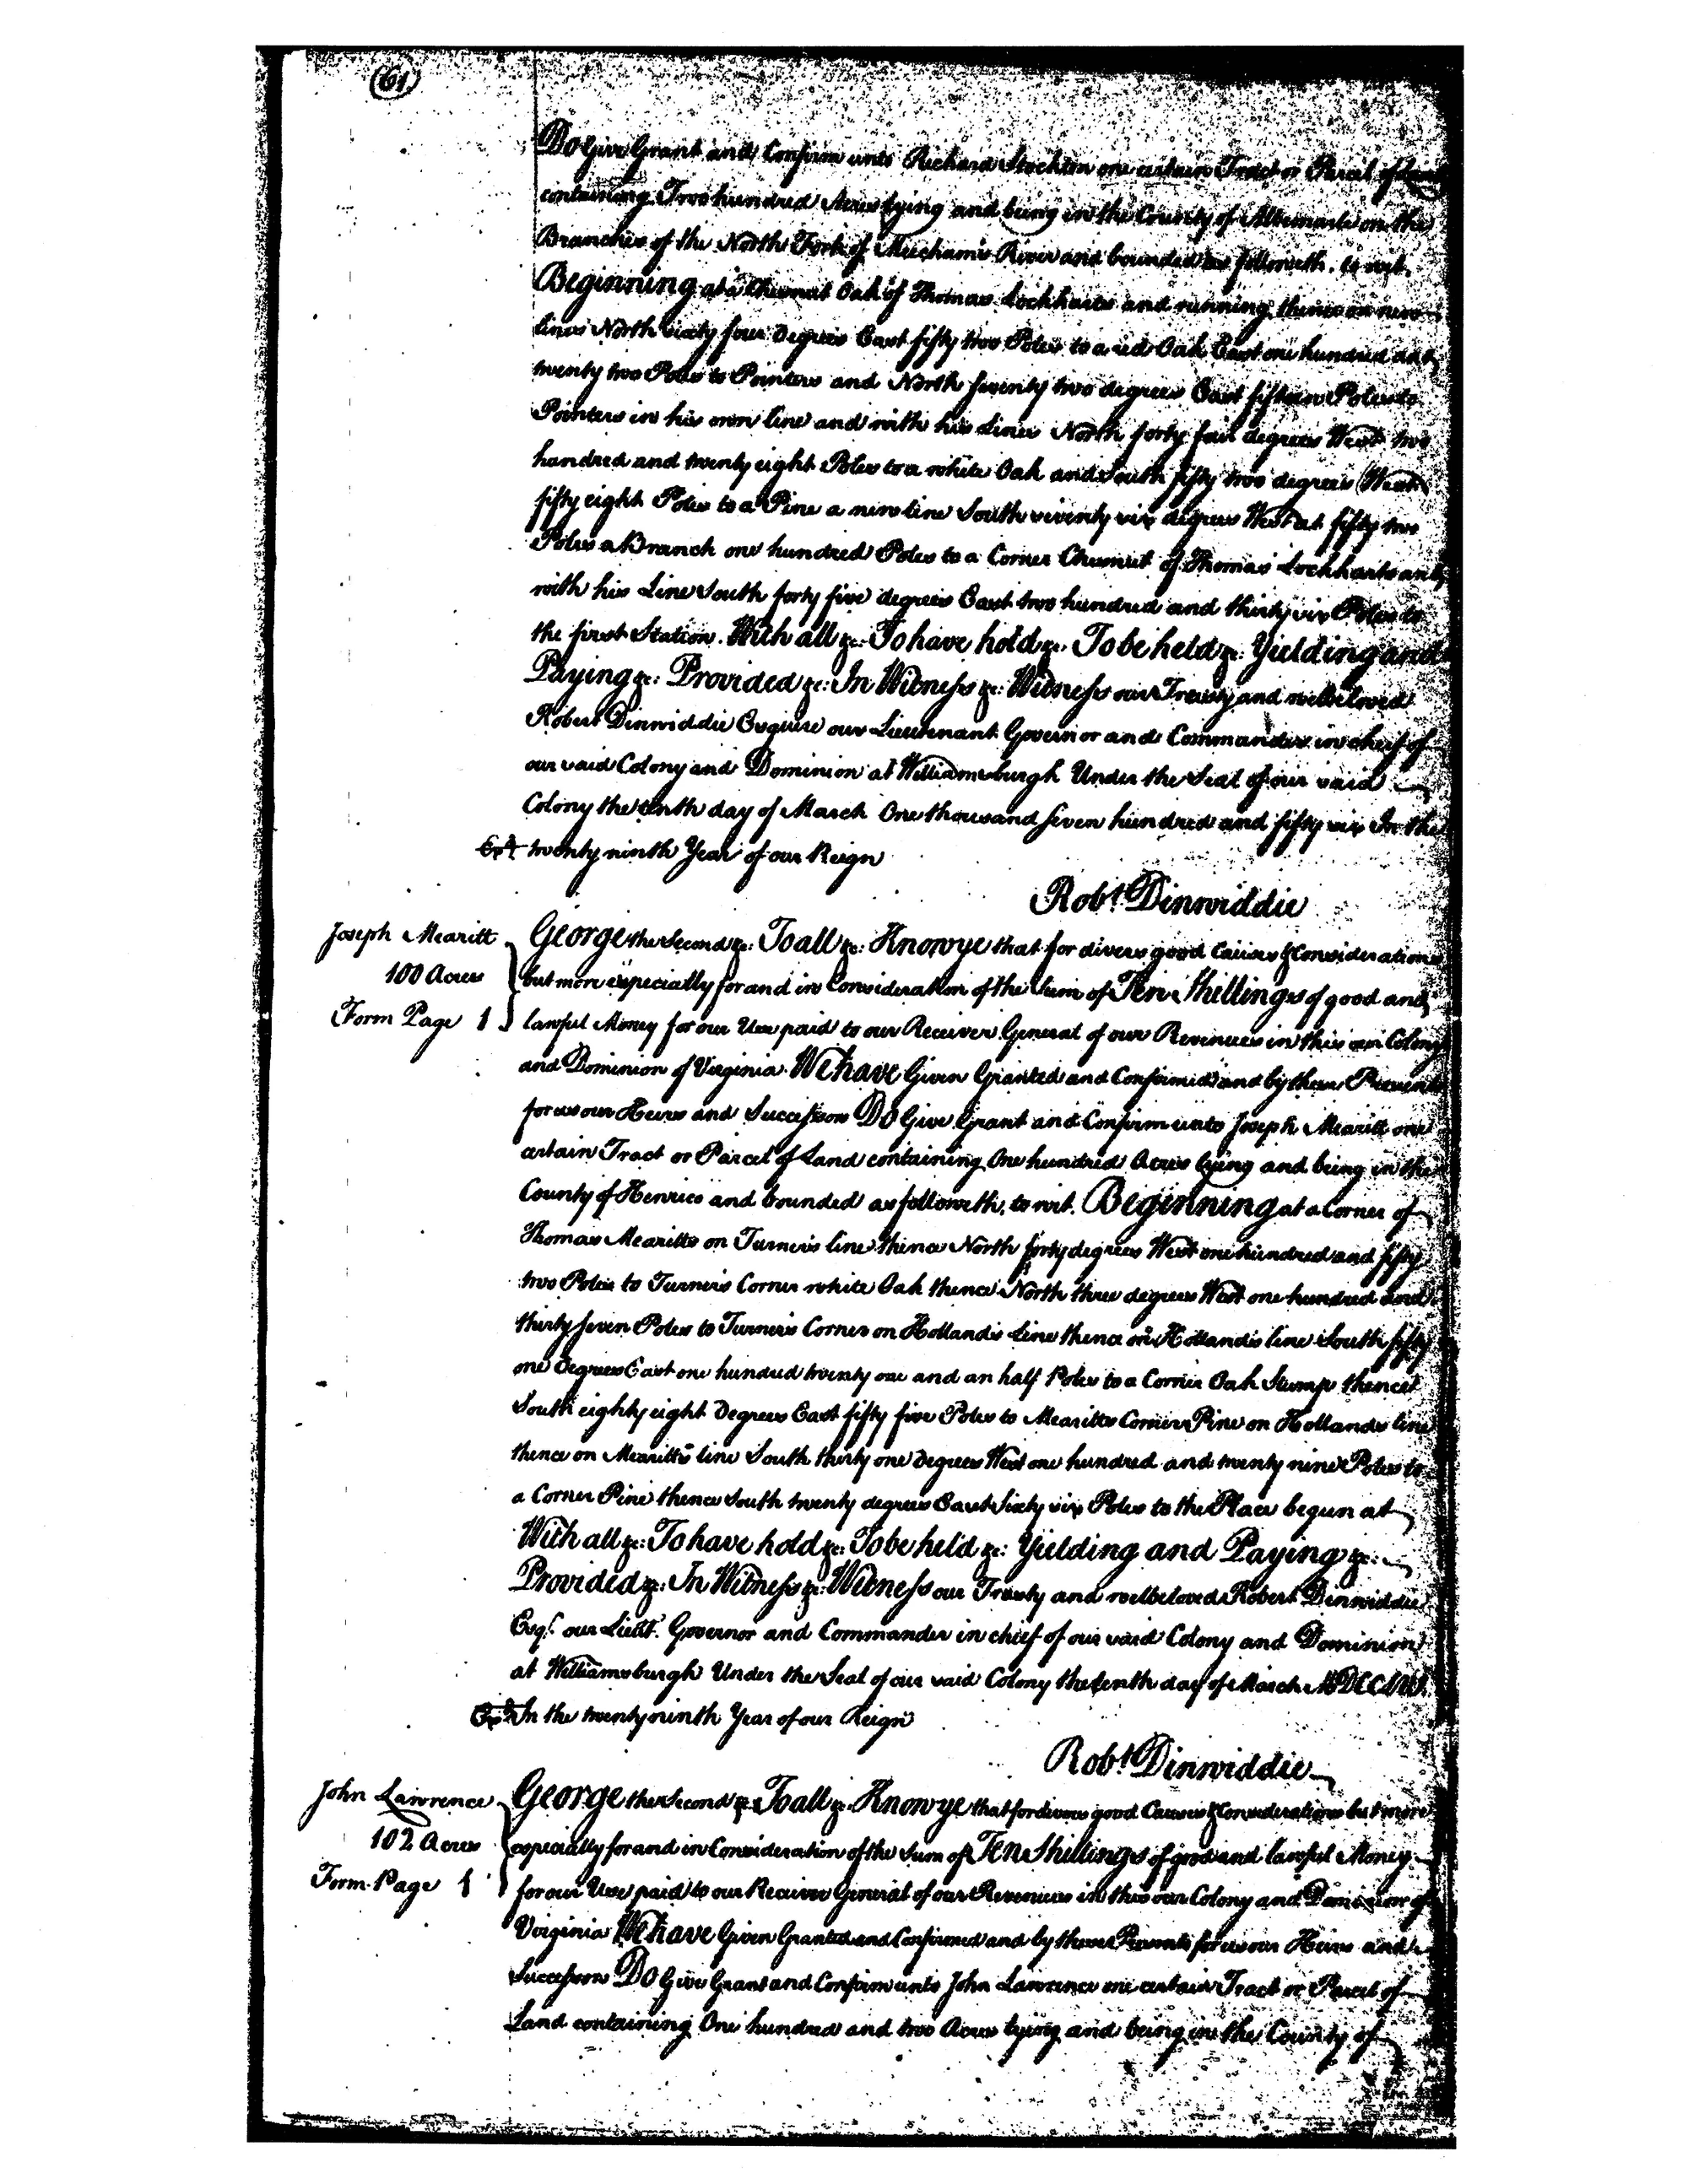 (61)
Do Give Grant and Confirm unto Richard Stockton one certain Tract or Parcel of Land
containing Two hundred Acres lying and being in the County of Albemarle on the
Branches of the North Fork of Meecham's River and bounded as followeth. to wit.
Beginning at a Chesnut Oak of Thomas Lockharts and running thence on new
lines North sixty four Degrees East fifty two Poles to a red Oak East one hundred and
twenty two Poles to Pointers and North seventy two degrees East fifteen Poles to
Pointers in his own line and with his Lines North forty four degrees West two
hundred and twenty eight Poles to a white Oak and South fifty two degrees West
fifty eight Poles to a Pine a new line South seventy six degrees West at fifty two
Poles a Branch one hundred Poles to a Corner Chesnut of Thomas Lockharts and
with his Line South forty five degrees East two hundred and thirty six Poles to
the first Station. With all &c: To have hold &c: To be held &c: Yielding and
Paying &c: Provided &c: In Witness &c: Witness our Trusty and welbeloved
Robert Dinwiddie Esquire our Lieutenant Governor and Commander in cheif of
our said Colony and Dominion at Williamsburgh Under the Seal of our said
Colony the tenth day of March One thousand seven hundred and fifty six In the
Exd twenty ninth Year of our Reign
Robt. Dinwiddie
Joseph Mearitt
100 Acres
Form Page 1
George the Second &c: To all &c: Know ye that for divers good Causes & Considerations
but more especially for and in Consideration of the Sum of Ten Shillings of good and
lawful Money for our Use paid to our Receiver General of our Revenues in this our Colony
and Dominion of Virginia We have Given Granted and Confirmed and by these Presents
for us our Heirs and Successors Do Give Grant and Confirm unto Joseph Mearitt one
certain Tract or Parcel of Land containing One hundred Acres lying and being in the
County of Henrico and bounded as followeth, to wit. Beginning at a Corner of
Thomas Mearitts on Turner's line thence North forty degrees West one hundred and fifty
two Poles to Turner's Corner white Oak thence North three degrees West one hundred and
thirty seven Poles to Turner's Corner on Holland's Line thence on Holland's line South fifty
one Degrees East one hundred twenty one and an half Poles to a Corner Oak Stump thence
South eighty eight Degrees East fifty five Poles to Mearitts Corner Pine on Hollands line
thence on Mearitt's line South thirty one Degrees West one hundred and twenty nine Poles to
a Corner Pine thence South twenty degrees East Sixty six Poles to the Place begun at
With all &c: To have hold &c: To be held &c: Yielding and Paying &c:
Provided &c: In Witness &c: Witness our Trusty and welbeloved Robert Dinwiddie
Esqr. our Lieut. Governor and Commander in chief of our said Colony and Dominion
at Williamsburgh Under the Seal of our said Colony the tenth day of March MDCCLVI.
Exd In the twenty ninth Year of our Reign
Robt. Dinwiddie
John Lawrence
102 Acres
Form Page 1
George the Second &c To all &c Know ye that for divers good Causes & Considerations but more
especially for and in Consideration of the Sum of Ten Shillings of good and lawful Money
for our Use paid to our Receiver General of our Revenues in this our Colony and Dominion of
Virginia We have Given Granted and Confirmed and by these Presents for us our Heirs and
Successors Do Give Grant and Confirm unto John Lawrence one certain Tract or Parcel of
Land containing One hundred and two Acres lying and being in the County of